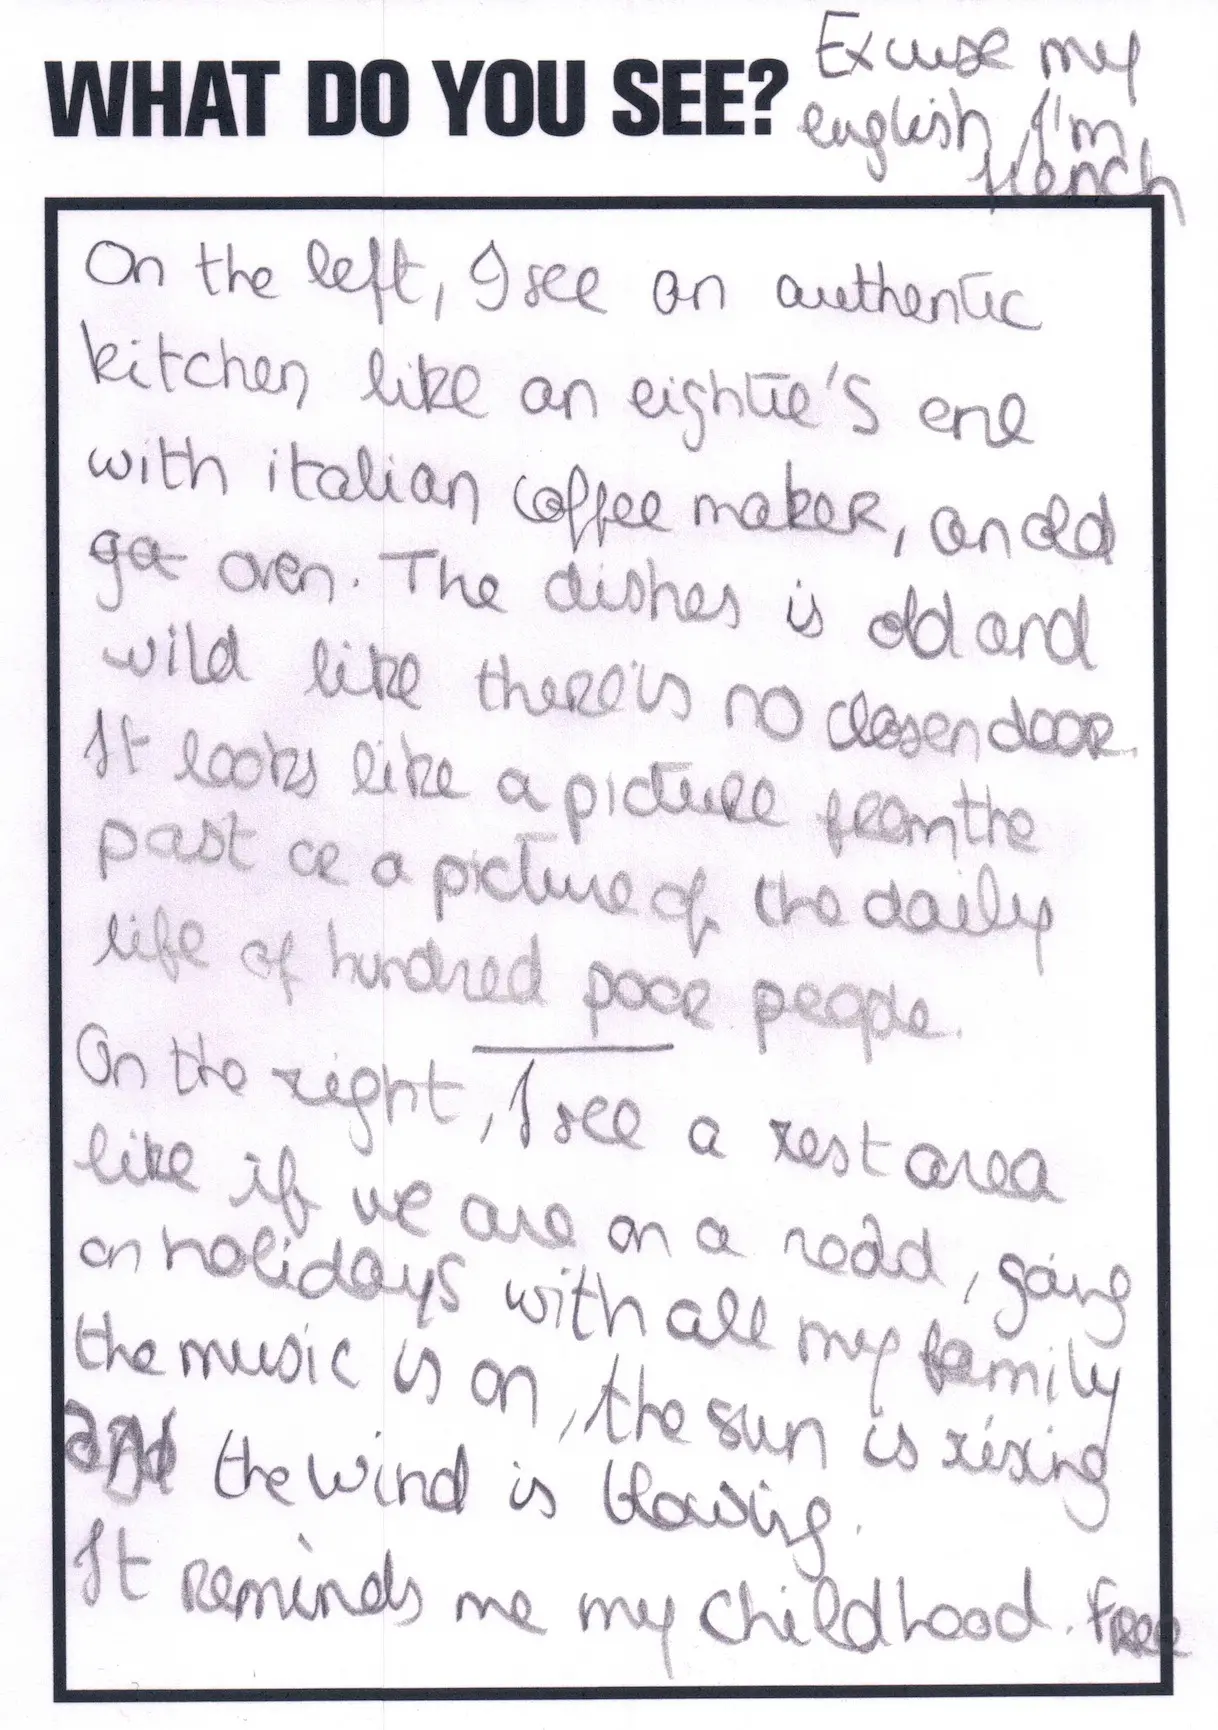 WHAT DO YOU SEE?
Excuse my
english, I'm
french
On the left, I see an authentic
kitchen like an eightie's one
with italian coffee maker, an old
gaz oven. The dishes is old and
wild like there is no closen door.
It looks like a picture from the
past or a picture of the daily
life of hundred poor people.
On the right, I see a rest area
like if we are on a road, going
on holidays with all my family
the music is on, the sun is rising
and the wind is blowing.
It reminds me my childhood. Free